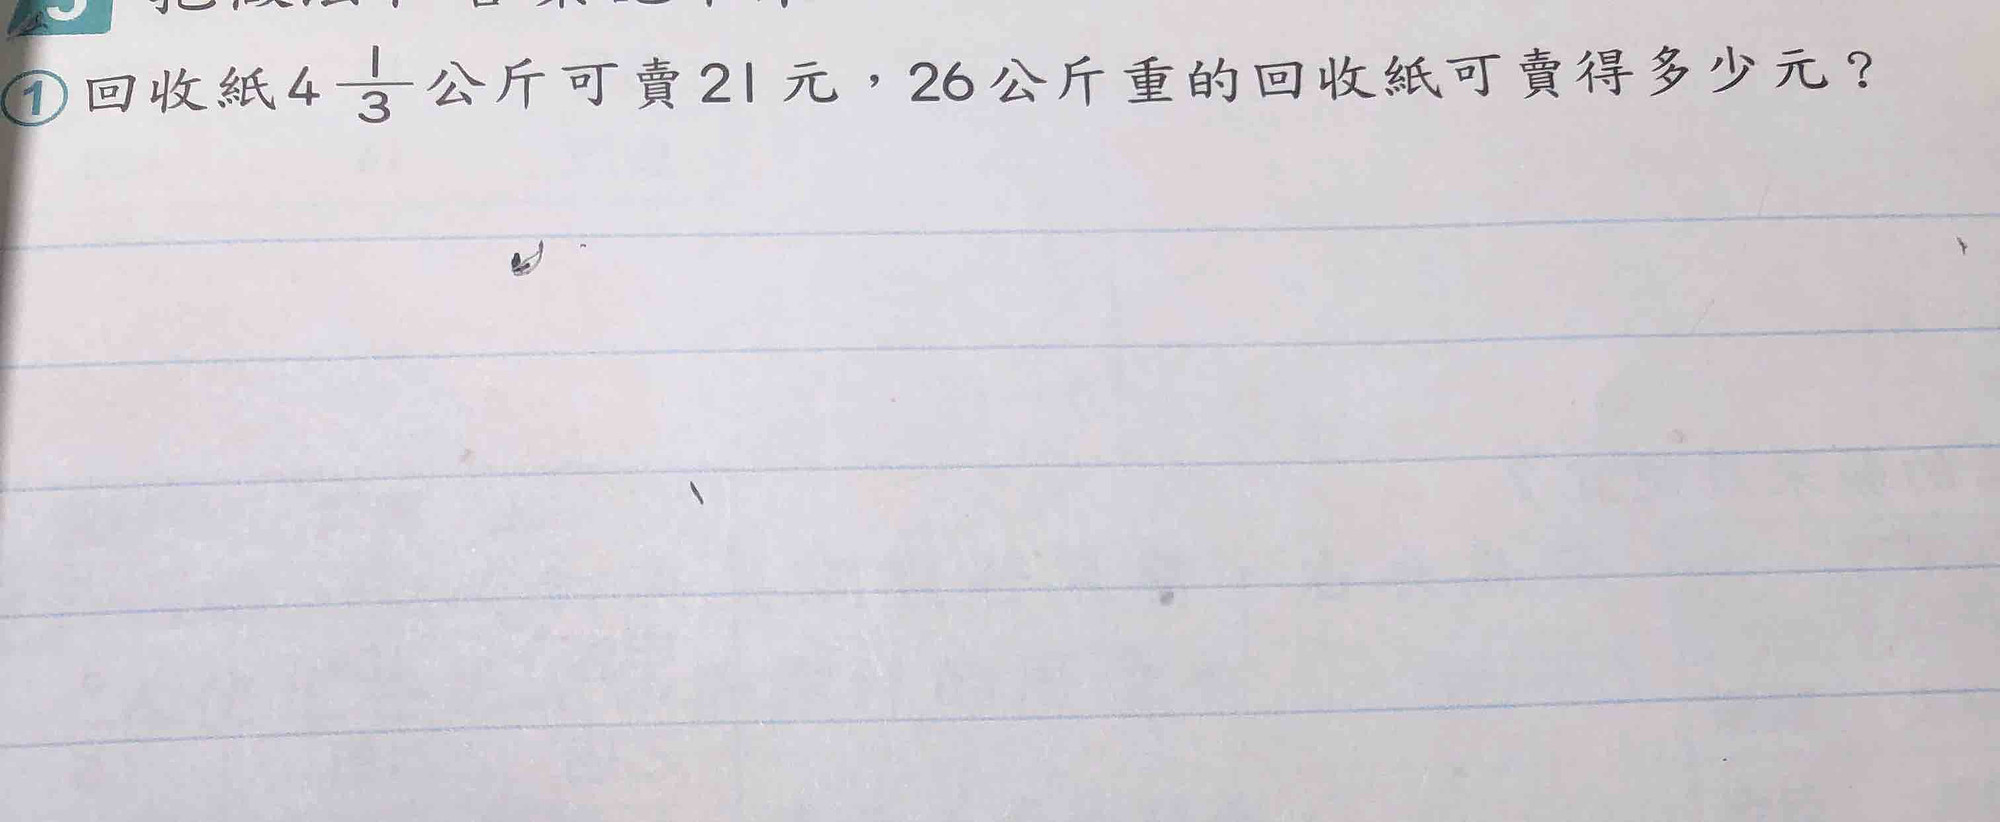 ① 回收紙4 1/3 公斤可賣21元，26公斤重的回收紙可賣得多少元？